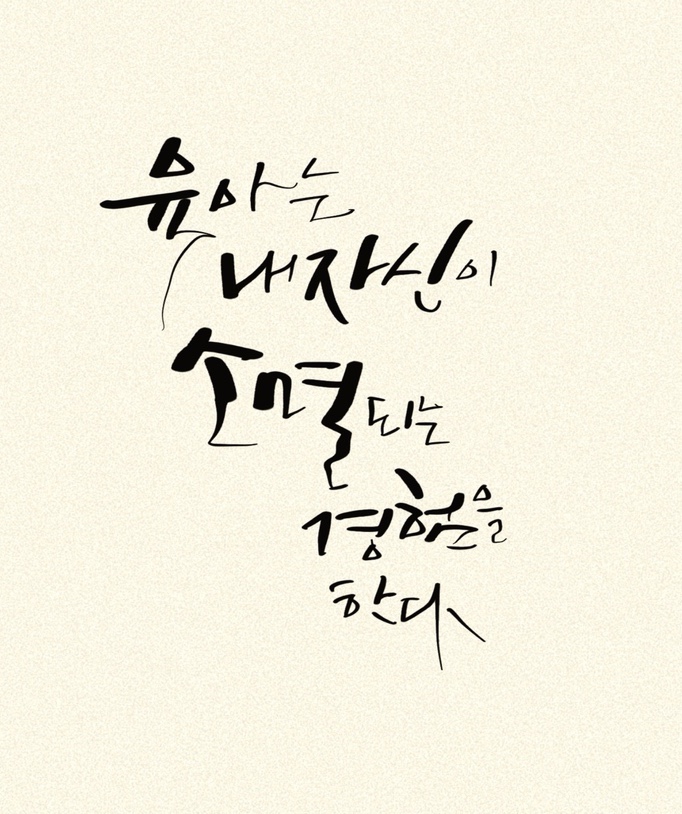 육아는
내자신이
소멸되는
경험을
한다